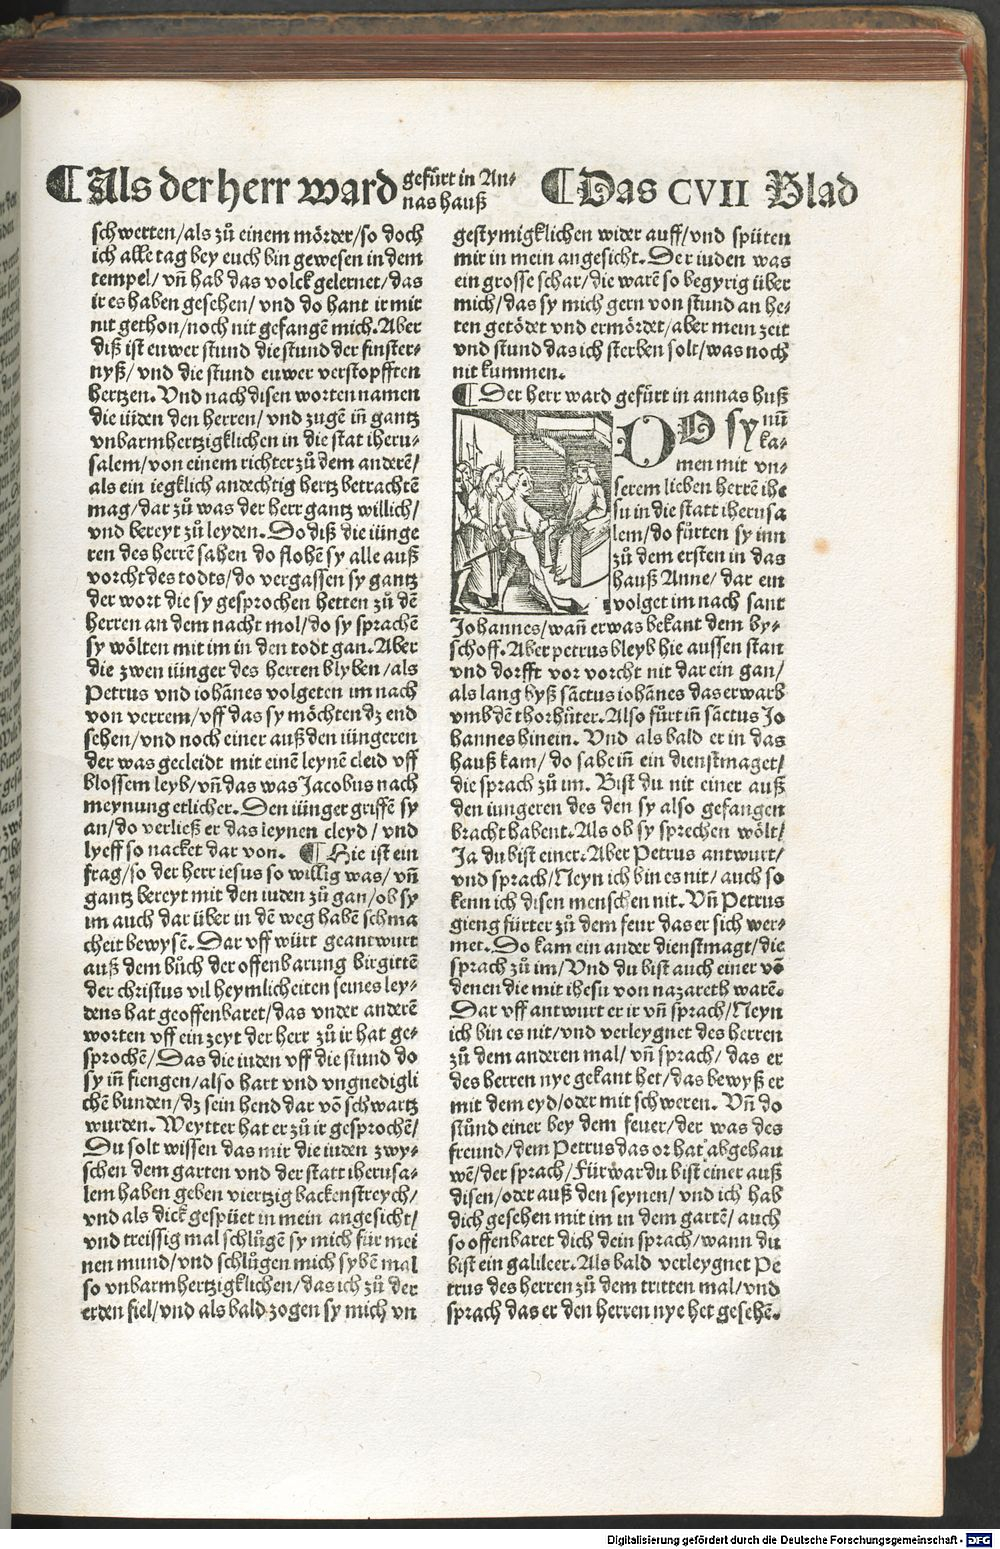 ¶ Als der herr ward gefürt in An-
nas hauß
¶ Das CVII Blad
schwerten/als zů einem mörder/so doch
ich alle tag bey euch bin gewesen in dem
tempel/ vñ hab das volck gelernet/das
ir es haben gesehen/ vnd do hant ir mir
nit gethon/noch nit gefangẽ mich. Aber
diß ist euwer stund die stund der finster-
nyß/ vnd die stund euwer verstopfften
hertzen. Vnd nach disen worten namen
die iüden den herren/ vnd zugẽ iñ gantz
vnbarmhertzigklichen in die stat iheru-
salem/von einem richter zů dem anderẽ/
als ein iegklich andechtig hertz betrachtẽ
mag/dar zů was der herr gantz willich/
vnd bereyt zů leyden. Do diß die iünge
ren des herrẽ sahen do flohẽ sy alle auß
vorcht des todts/do vergassen sy gantz
der wort die sy gesprochen hetten zů dẽ
herren an dem nacht mol/do sy sprachẽ
sy wölten mit im in den todt gan. Aber
die zwen iünger des herren blyben/als
Petrus vnd iohãnes volgeten im nach
von verrem/vff das sy möchten dz end
sehen/vnd noch einer auß den iüngeren
der was gecleidt mit einẽ leynẽ cleid vff
blossem leyb/vñ das was Jacobus nach
meynung etlicher. Den iünger griffẽ sy
an/do verließ er das leynen cleyd/ vnd
lyeff so nacket dar von. ¶ Hie ist ein
frag/so der herr iesus so willig was/ vñ
gantz bereyt mit den iuden zů gan/ob sy
im auch dar über in dẽ weg habẽ schma
cheit bewysẽ. Dar vff würt geantwurt
auß dem bůch der offenbarung birgittẽ
der christus vil heymlicheiten seines ley-
dens hat geoffenbaret/das vnder anderẽ
worten vff ein zeyt der herr zů ir hat ge-
sprochẽ/Das die iuden vff die stund do
sy iñ fiengen/also hart vnd vngnedigli
chẽ bunden/dz sein hend dar võ schwartz
wurden. Weytter hat er zů ir gesprochẽ/
Du solt wissen das mir die iuden zwy-
schen dem garten vnd der statt iherusa-
lem haben geben viertzig backenstreych/
vnd als dick gespüet in mein angesicht/
vnd treissig mal schlůgẽ sy mich für mei
nen mund/vnd schlůgen mich sybẽ mal
so vnbarmhertzigklichen/das ich zů der
erden fiel/vnd als bald zogen sy mich vn
gestymigklichen wider auff/vnd spüten
mir in mein angesicht. Der iuden was
ein grosse schar/die warẽ so begyrig über
mich/das sy mich gern von stund an he-
ten getödet vnd ermördet/aber mein zeit
vnd stund das ich sterben solt/was noch
nit kummen.
¶ Der herr ward gefürt in annas huß
DO sy nũ
ka-
men mit vn-
serem lieben herrẽ ihe
su in die statt iherusa
lem/do fürten sy inn
zů dem ersten in das
hauß Anne/ dar ein
volget im nach sant
Johannes/wañ er was bekant dem by-
schoff. Aber petrus bleyb hie aussen stan
vnd dorfft vor vorcht nit dar ein gan/
als lang byß sãctus iohãnes das erwarb
vmb dẽ thorhüter. Also fürt iñ sãctus Jo
hannes hinein. Vnd als bald er in das
hauß kam/ do sahe iñ ein dienstmaget/
die sprach zů im. Bist du nit einer auß
den iungeren des den sy also gefangen
bracht habent. Als ob sy sprechen wölt/
Ja du bist einer. Aber Petrus antwurt/
vnd sprach/Neyn ich bin es nit/ auch so
kenn ich disen menschen nit. Vñ Petrus
gieng fürter zů dem feur das er sich wer-
met. Do kam ein ander dienstmagt/die
sprach zů im/Vnd du bist auch einer võ
denen die mit ihesu von nazareth warẽ.
Dar vff antwurt er ir vñ sprach/Neyn
ich bin es nit/vnd verleygnet des herren
zů dem anderen mal/ vñ sprach/ das er
des herren nye gekant het/das bewyß er
mit dem eyd/oder mit schweren. Vñ do
stůnd einer bey dem feuer/der was des
freund/dem Petrus das or hat abgehau
wẽ/der sprach/Fürwar du bist einer auß
disen/oder auß den seynen/ vnd ich hab
dich gesehen mit im in dem gartẽ/ auch
so offenbaret dich dein sprach/wann du
bist ein galileer. Als bald verleygnet Pe
trus des herren zů dem tritten mal/vnd
sprach das er den herren nye het gesehẽ.
Digitalisierung gefördert durch die Deutsche Forschungsgemeinschaft - DFG